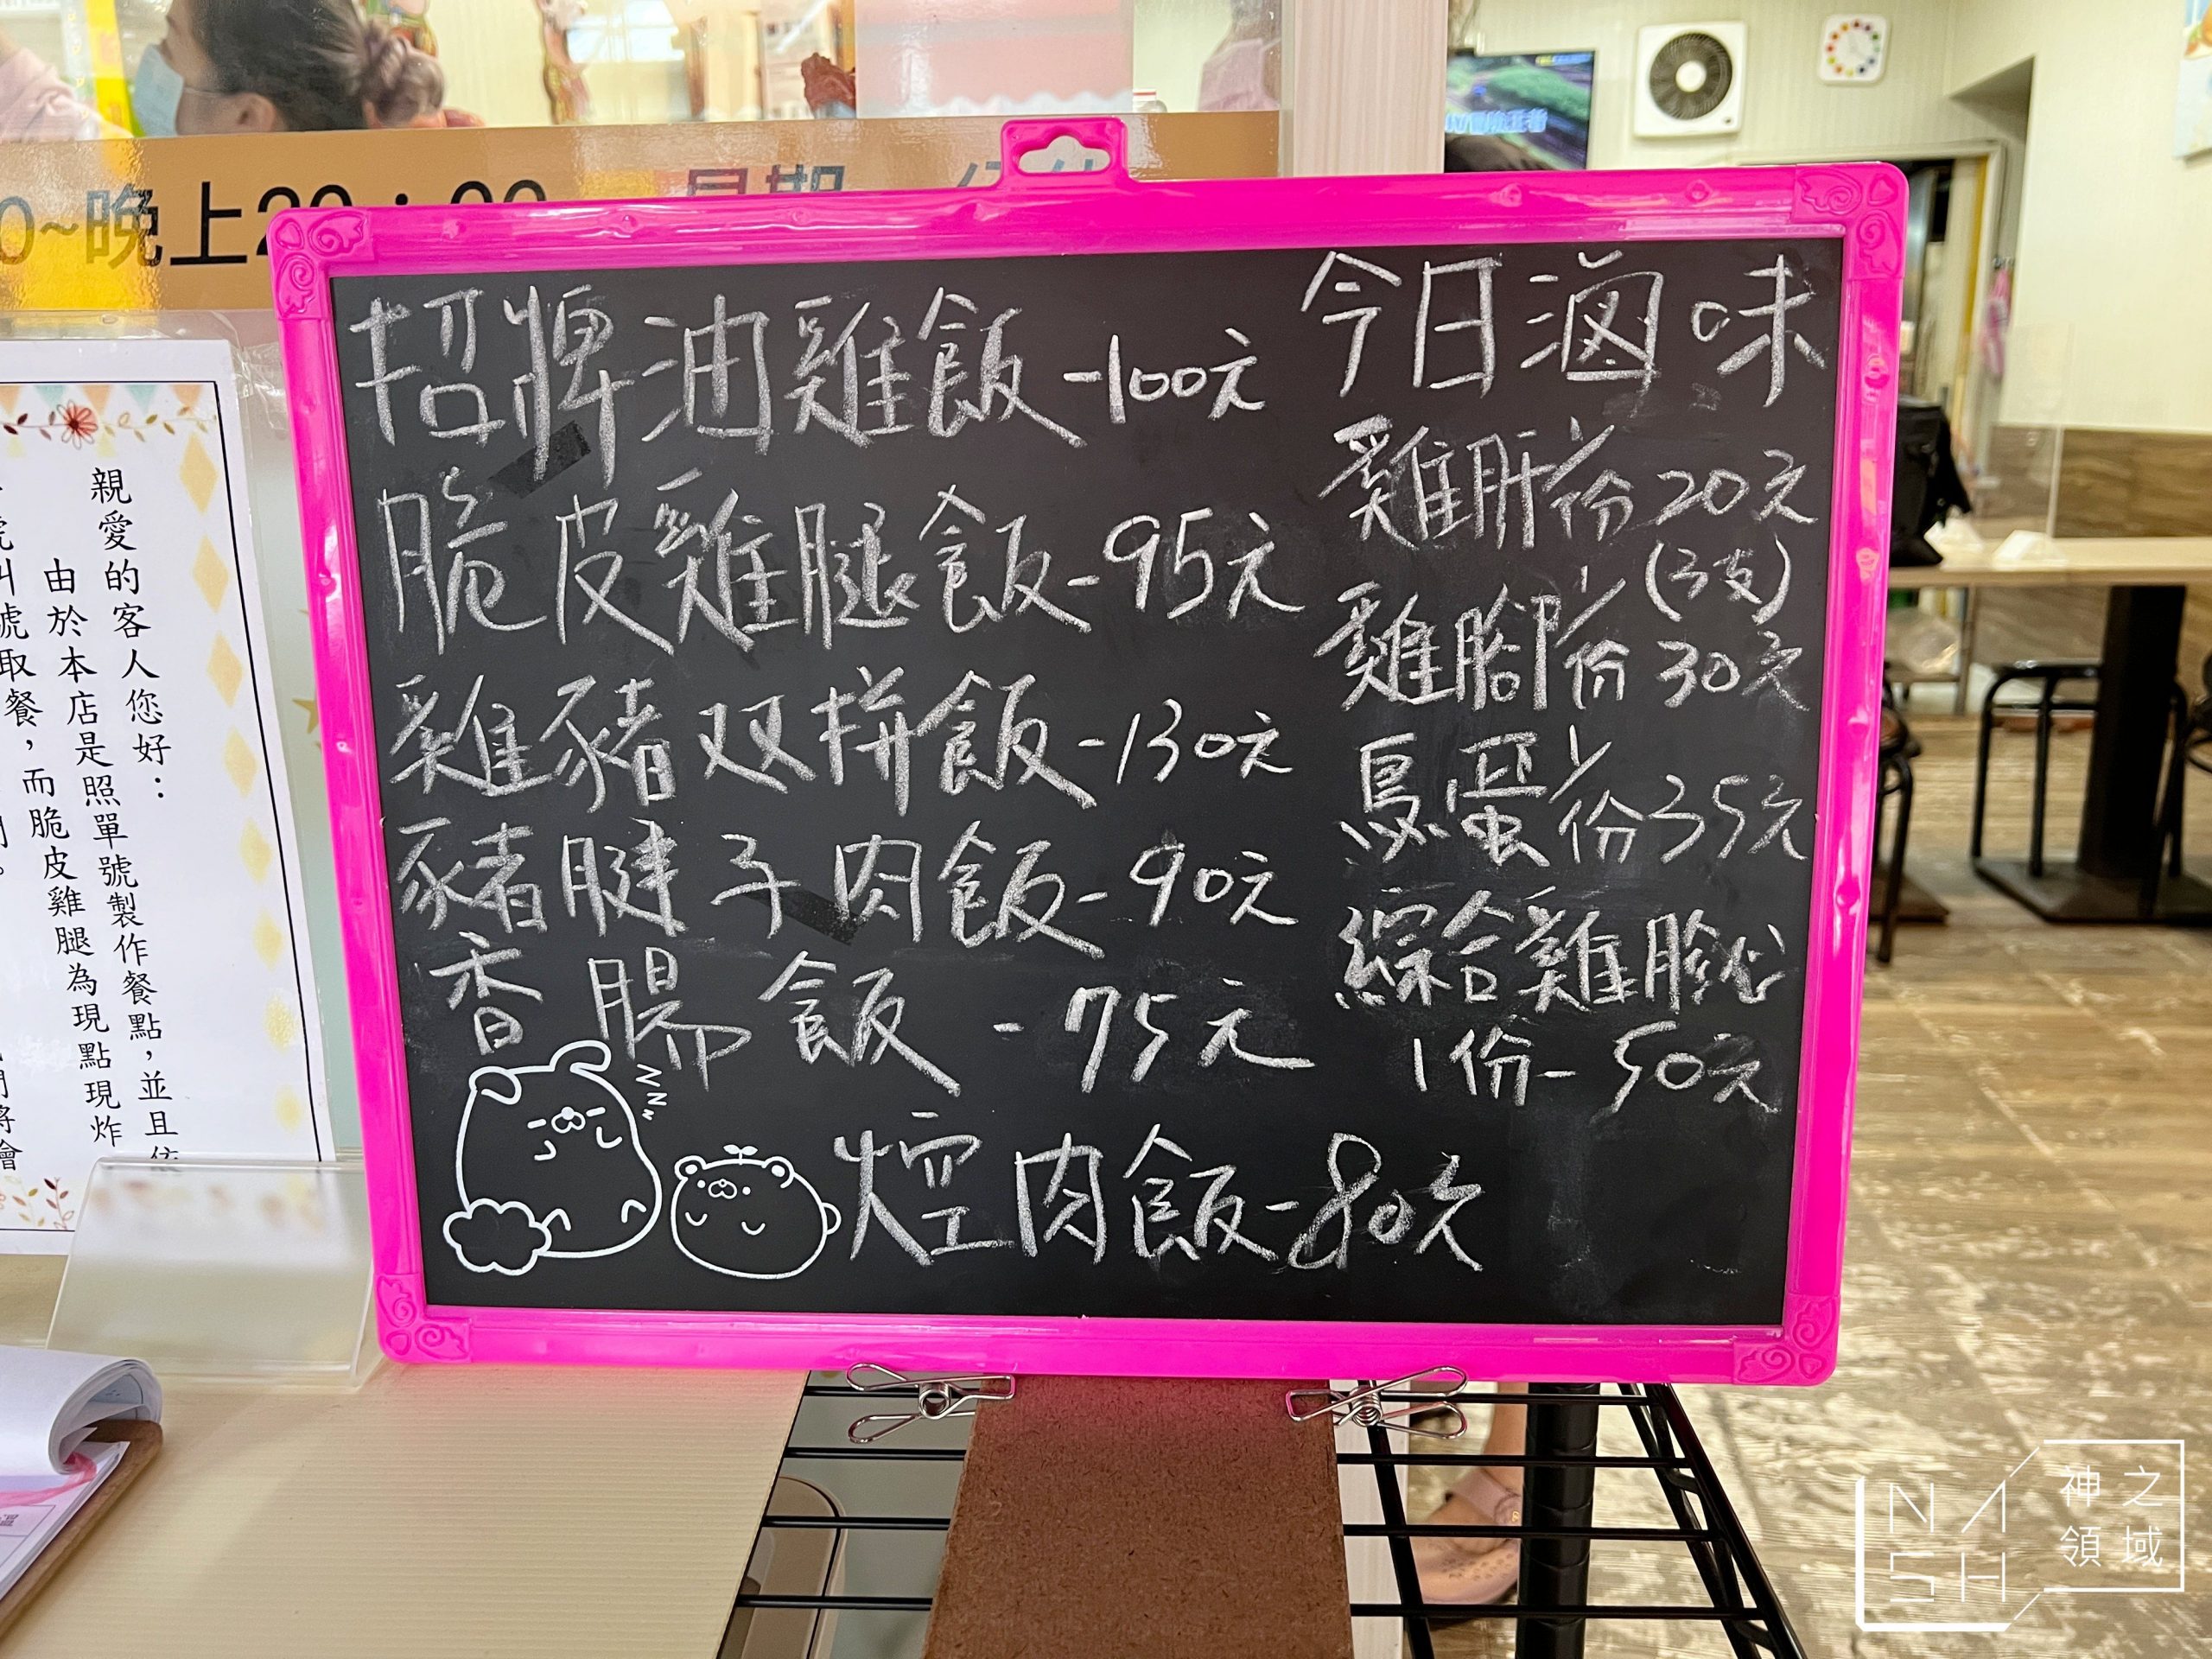 晚上20:00
招牌油雞飯-100元
脆皮雞腿飯-95元
雞豬双拼飯-130元
豬腱子肉飯-90元
香腸飯-75元
焢肉飯-80元
今日滷味
雞肝1份20元
(3支)
雞腳1份30元
鳥蛋1份35元
綜合雞胗心
1份-50元
親愛的客人您好：
由於本店是照單號製作餐點，並且依
號叫號取餐，而脆皮雞腿為現點現炸
NASH
神之
領域